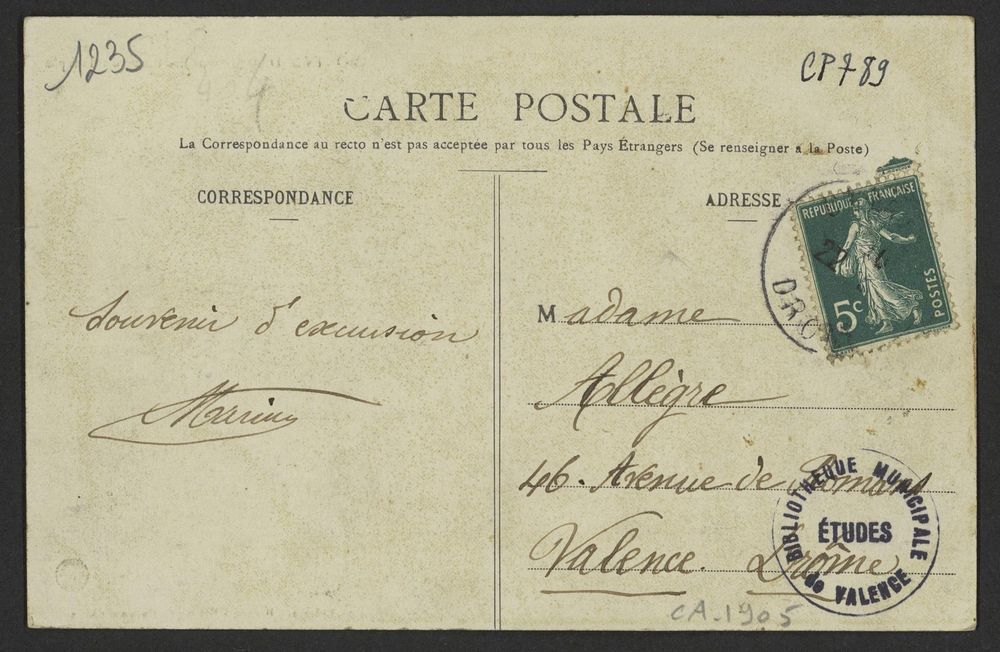 1235
CP789
CARTE POSTALE
La Correspondance au recto n'est pas acceptée par tous les Pays Étrangers (Se renseigner à la Poste)
CORRESPONDANCE
ADRESSE
REPUBLIQUE FRANÇAISE
POSTES
5c
22
DRO
Souvenir d'excursion
Marius
Madame
Allègre
46. Avenue de Romans
Valence. Drôme
BIBLIOTHEQUE MUNICIPALE
ÉTUDES
de VALENCE
CA-1905